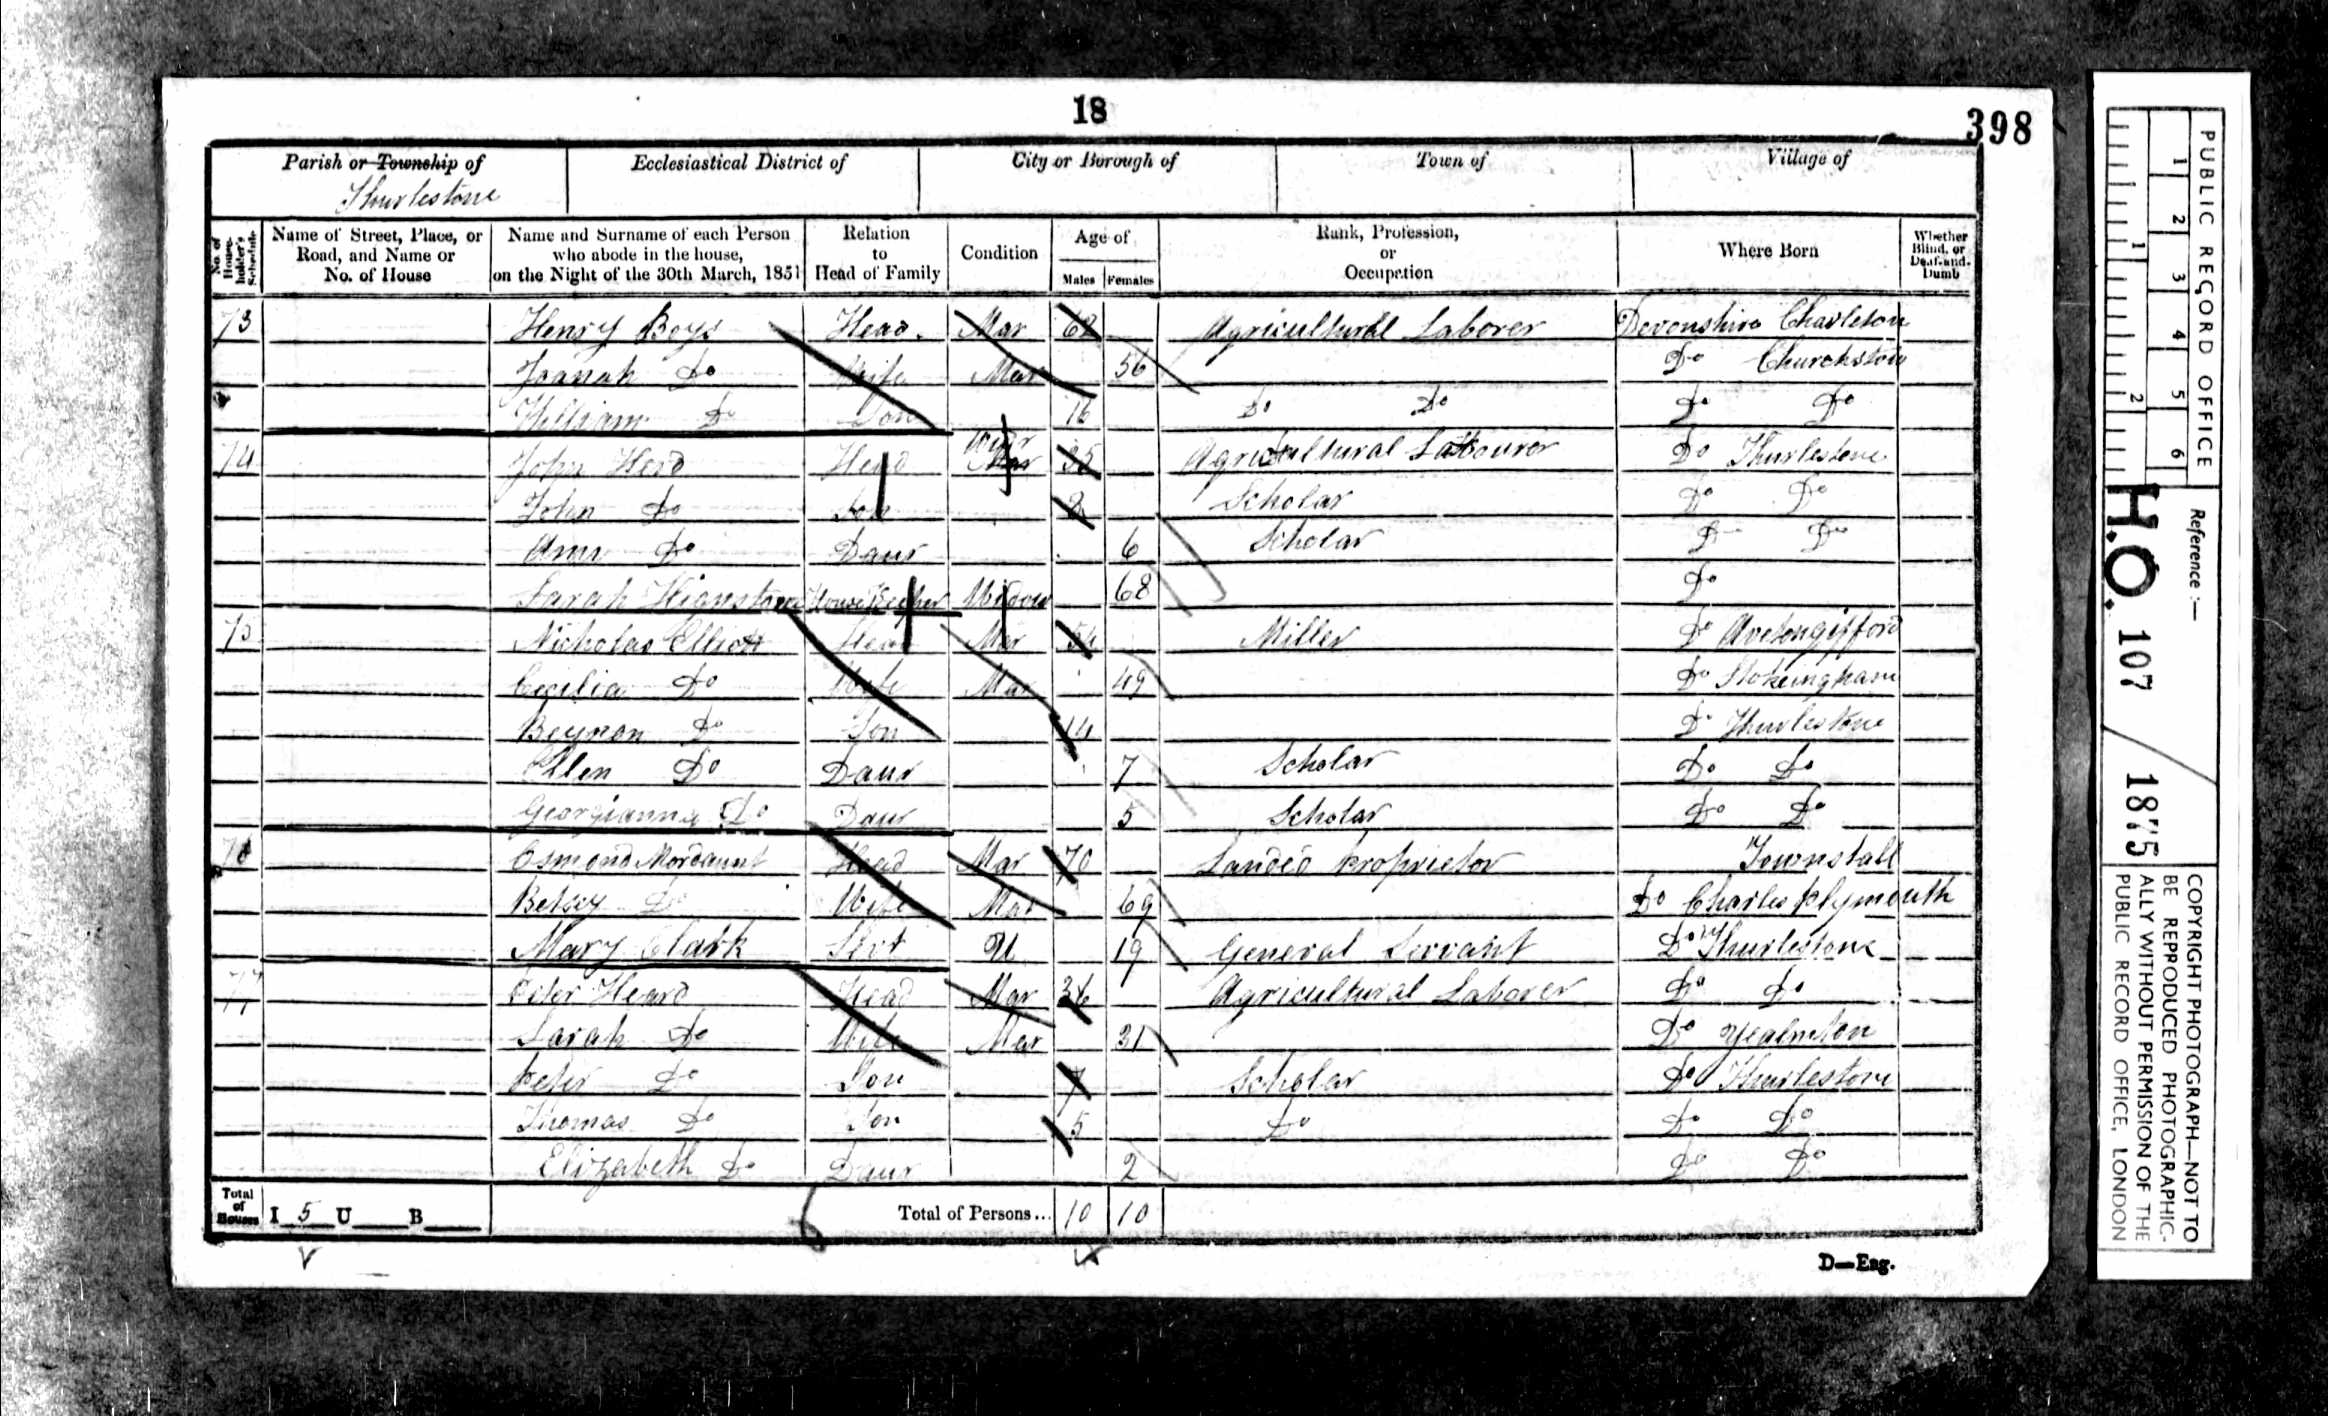 18
398
Parish or Township of
Thurlestone
Ecclesiastical District of
City or Borough of
Town of
Village of
No. of Householder's Schedule
Name of Street, Place, or Road, and Name or No. of House
Name and Surname of each Person who abode in the house, on the Night of the 30th March, 1851
Relation to Head of Family
Condition
Age of
Males Females
Rank, Profession, or Occupation
Where Born
Whether Blind, or Deaf-and-Dumb
73 Henry Boys Head Mar Agricultural Laborer Devonshire Charleton
Joanah Do Wife Mar 56 Do Churchstow
William Do Son 16 Do Do Do Do
74 John Herd Head 35 Agricultural Labourer Do Thurlestone
John Do Son Scholar Do Do
Ann Do Daur 6 Scholar Do Do
Sarah House Keeper Widow 68 Do
75 Nicholas Elliott Head Mar 54 Miller Do Avetongifford
Cecilia Do Wife Mar 49 Do Stokeingham
Do Son 14 Do Thurlestone
Ellen Do Daur 7 Scholar Do Do
Georgianna Do Daur 5 Scholar Do Do
76 Osmond Mordaunt Head Mar 70 Landed Proprietor Townstall
Betsey Do Wife Mar 69 Do Charles Plymouth
Mary Clark Servt U 19 General Servant Do Thurlestone
77 Peter Heard Head Mar 36 Agricultural Laborer Do Do
Sarah Do Wife Mar 31 Do Yealmton
Peter Do Son 7 Scholar Do Thurlestone
Thomas Do Son 5 Do Do Do
Elizabeth Do Daur 2 Do Do
Total of Houses I 5 U B Total of Persons... 10 10
D—Eng.
PUBLIC RECORD OFFICE
1 2 3 4 5 6
1 2
Reference:—
H.O. 107 / 1875
COPYRIGHT PHOTOGRAPH—NOT TO
BE REPRODUCED PHOTOGRAPHIC-
ALLY WITHOUT PERMISSION OF THE
PUBLIC RECORD OFFICE, LONDON